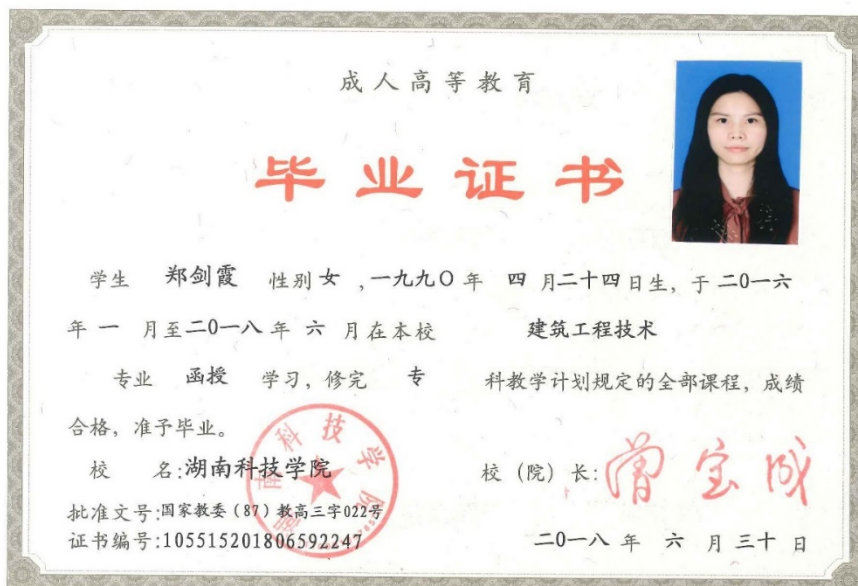 成人高等教育
毕业证书
学生 郑剑霞 性别 女 ,一九九〇年 四 月二十四日生, 于 二〇一六
年 一 月至二〇一八年 六 月在本校 建筑工程技术
专业 函授 学习, 修完 专 科教学计划规定的全部课程, 成绩
合格, 准予毕业。
校 名:湖南科技学院
校 (院) 长: 曾宝成
批准文号:国家教委(87)教高三字022号
证书编号:105515201806592247
二〇一八 年 六 月 三十 日
湖南科技学院